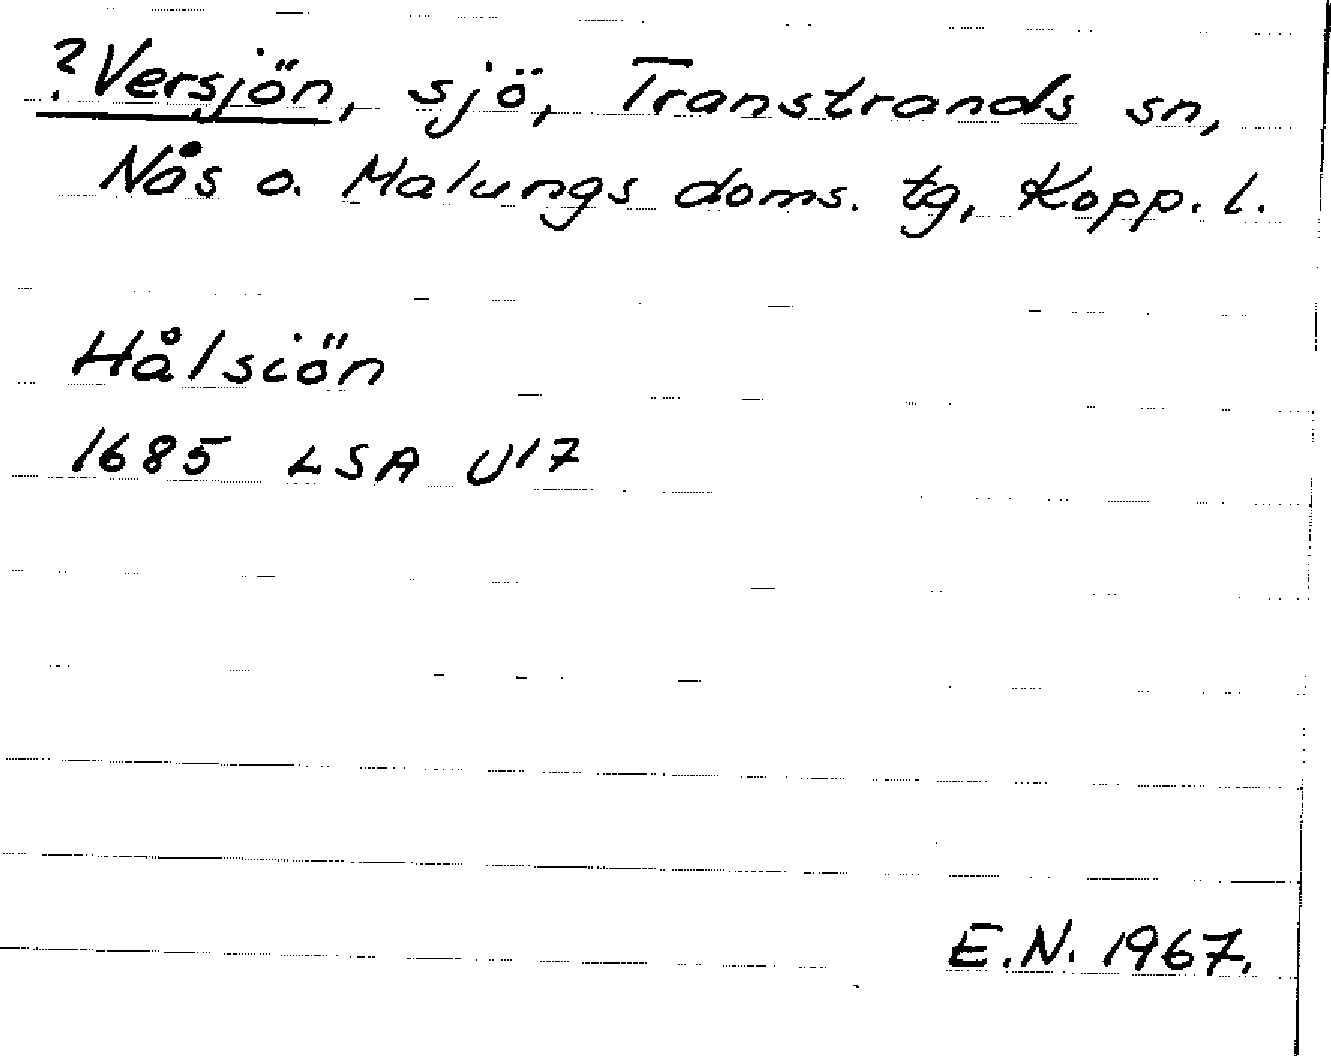 ?Versjön, sjö, Transtrands sn,
Nås o. Malungs doms. tg, Kopp. l.
Hålsiön
1685 LSA U17
E.N. 1967.